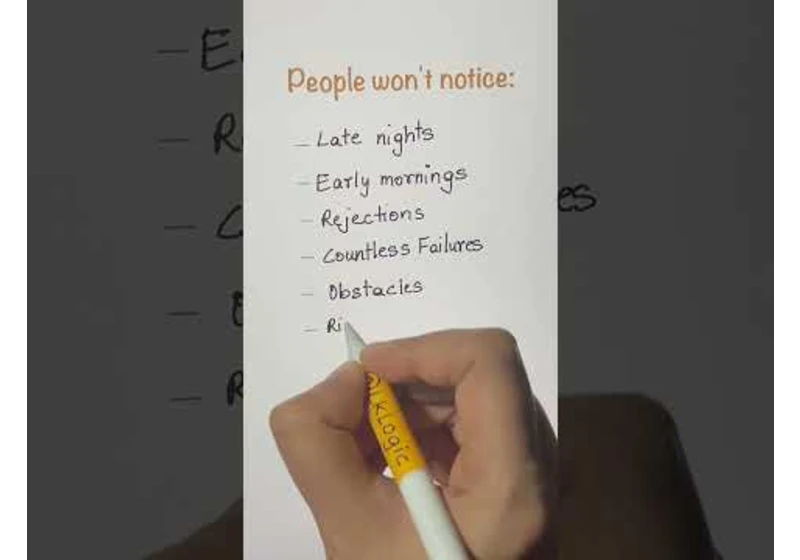 People won't notice:
- Late nights
- Early mornings
- Rejections
- Countless Failures
- Obstacles
- Ri
@LKLogic